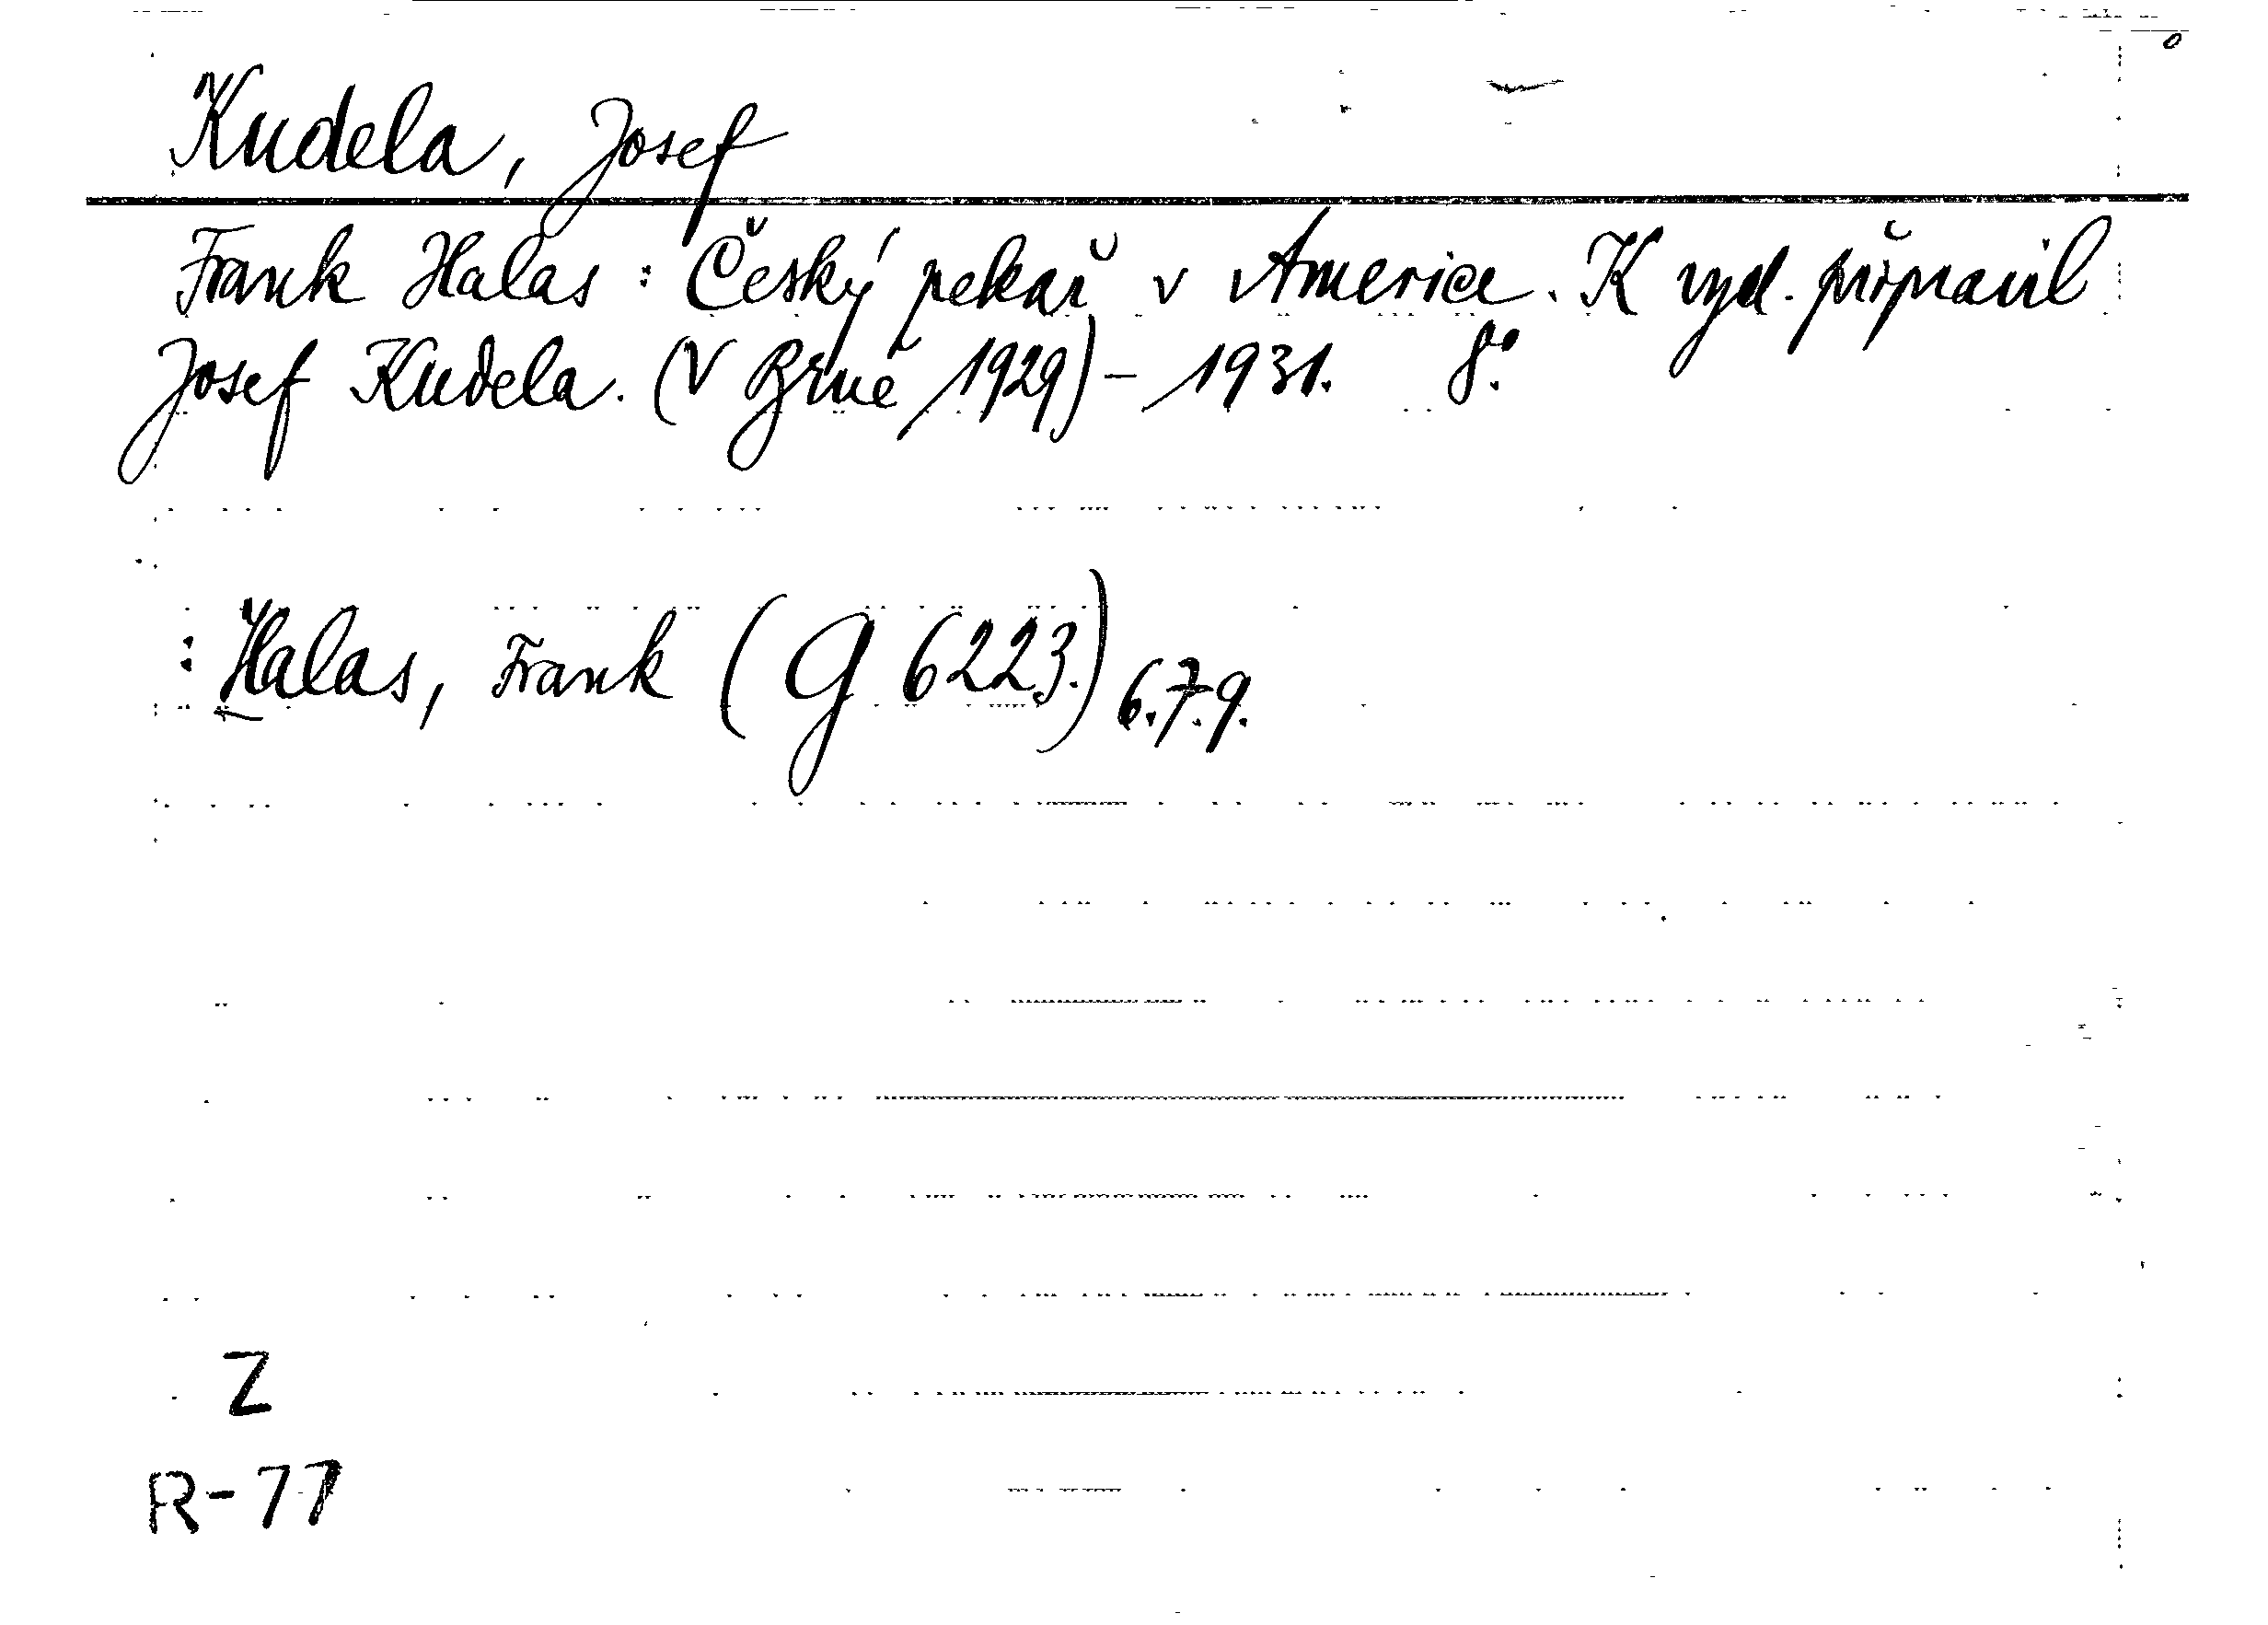 Kudela, Josef
Frank Halas: Český pekař v Americe. K vyd. připravil
Josef Kudela. (V Brně 1929) - 1931. 8°.
: Halas, Frank (G 6223.) 6.7.9.
Z
R-77